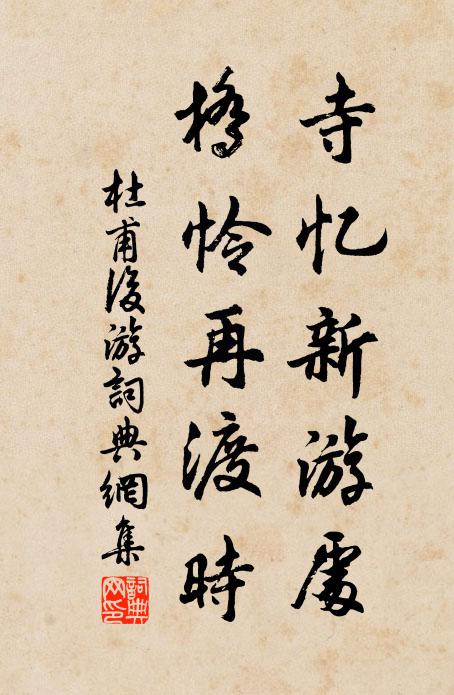 寺忆新游處
橋怜再渡時
杜甫後游詞典網集
詞典
网印